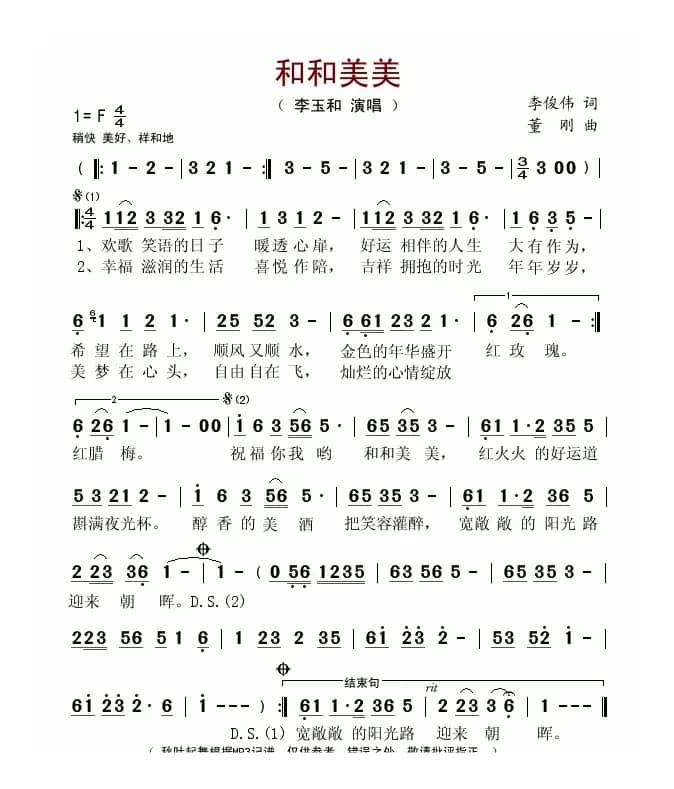 和和美美
( 李玉和 演唱 )
李俊伟 词
1= F 4/4
董 刚 曲
稍快 美好、祥和地
( 𝄆 1 - 2 - | 3 2 1 - :| 3 - 5 - | 3 - 5 - | 3 2 1 - | 3/4 3 0 0 ) |
(1)
4/4 1 112 3 332 1 6· | 1 3 1 2 - | 112 3 332 1 6· | 5 1 6 3 5 - |
1、欢歌 笑语的日子 暖透心扉, 好运 相伴的人生 大有作为,
2、幸福 滋润的生活 喜悦作陪, 吉祥 拥抱的时光 年年岁岁,
1
6 6 1 1 2 1· | 25 52 3 - | 6 61 23 21 | 6 26 1 - :|
希望在路上, 顺风又顺水, 金色的年华盛开 红玫 瑰。
美梦在心头, 自由自在飞, 灿烂的心情绽放
2 (2)
6 26 1 - | 1 - 00 | 1 6 3 56 5· | 35 32 3 - | 61 1·2 35 |
红腊 梅。 祝福你我 哟 和和美 美, 红火火 的好运道
5 3 21 2 - | 1 6 3 56 | 5 35 32 3 - | 61 1·2 36 56 |
斟满夜光杯。 醇香的美 酒 把笑容灌醉, 宽敞敞 的阳光路
2 23 36 1 - | 1 - ( 0 56 1235 | 63 56 5 - | 35 65 3 - |
迎来 朝 晖。D.S.(2)
223 56 5 1 6 | 123 56 35 2 - | 61 23 2 - | 53 52 1 - |
结束句 rit
61 23 2·6 | 1 - - - ) :| 61 1·2 36 5 | 2 23 3 6 | 1 - - - ‖
D.S.(1) 宽敞敞 的阳光路 迎来 朝 晖。
( 秋叶起舞根据MP3记谱,仅供参考。错误之处,敬请批评指正。)